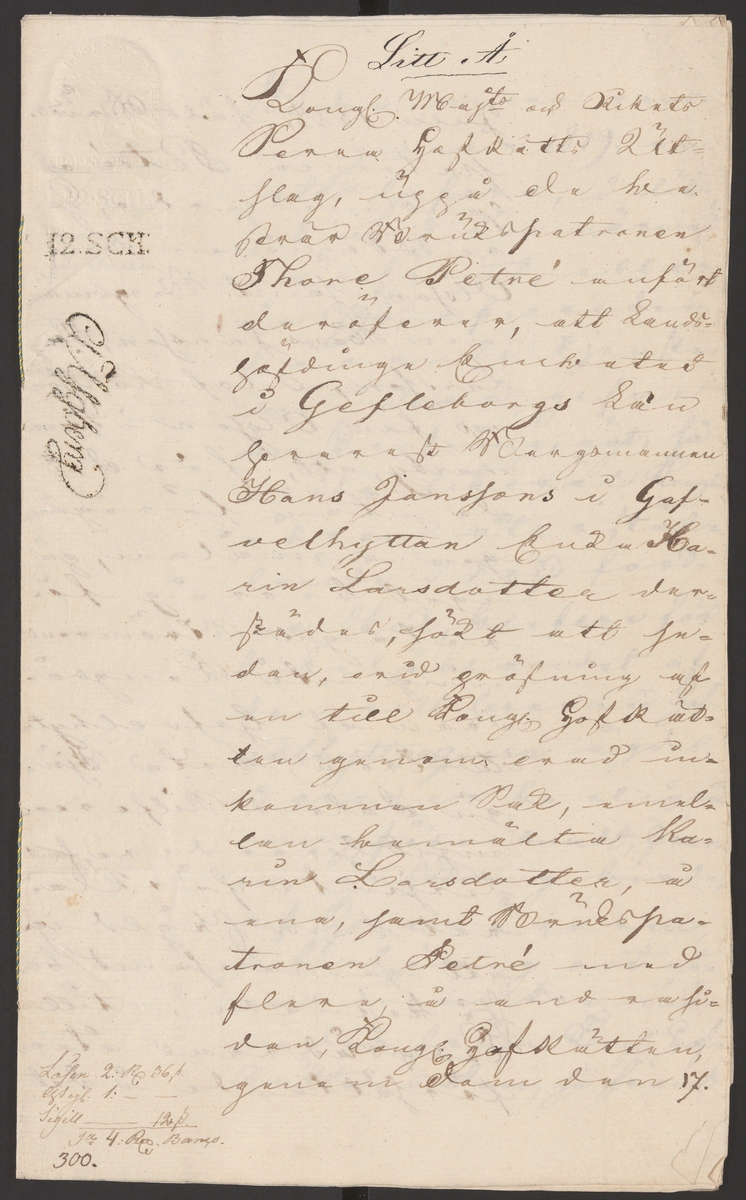 Litt. A
Kongl. Maj:ts och Rikets
Svea HofRätts Ut-
slag, uppå de be-
svär Brukspatronen
Thore Petré anfört
deröfver, att Lands-
höfdinge Embetet
i Gefleborgs Län
Bergsmannen
Hans Janssons i Gaf-
velhyttan Enka Ka-
rin Larsdotter der-
städes, sökt att se-
dan, vid pröfning af
en till Kongl. HofRät-
ten genom vad in-
kommen Sak, emel-
lan bemälta Ka-
rin Larsdotter, å
ena, samt Brukspa-
tronen Petré med
flere, å andra si-
dan, Kongl. HofRätten,
genom dom den 17.
12.SCH.
Lösen 2: Rd 36 s.
1: — —
Sigill 12 s.
S:a 4: Rd. Banco.
300.